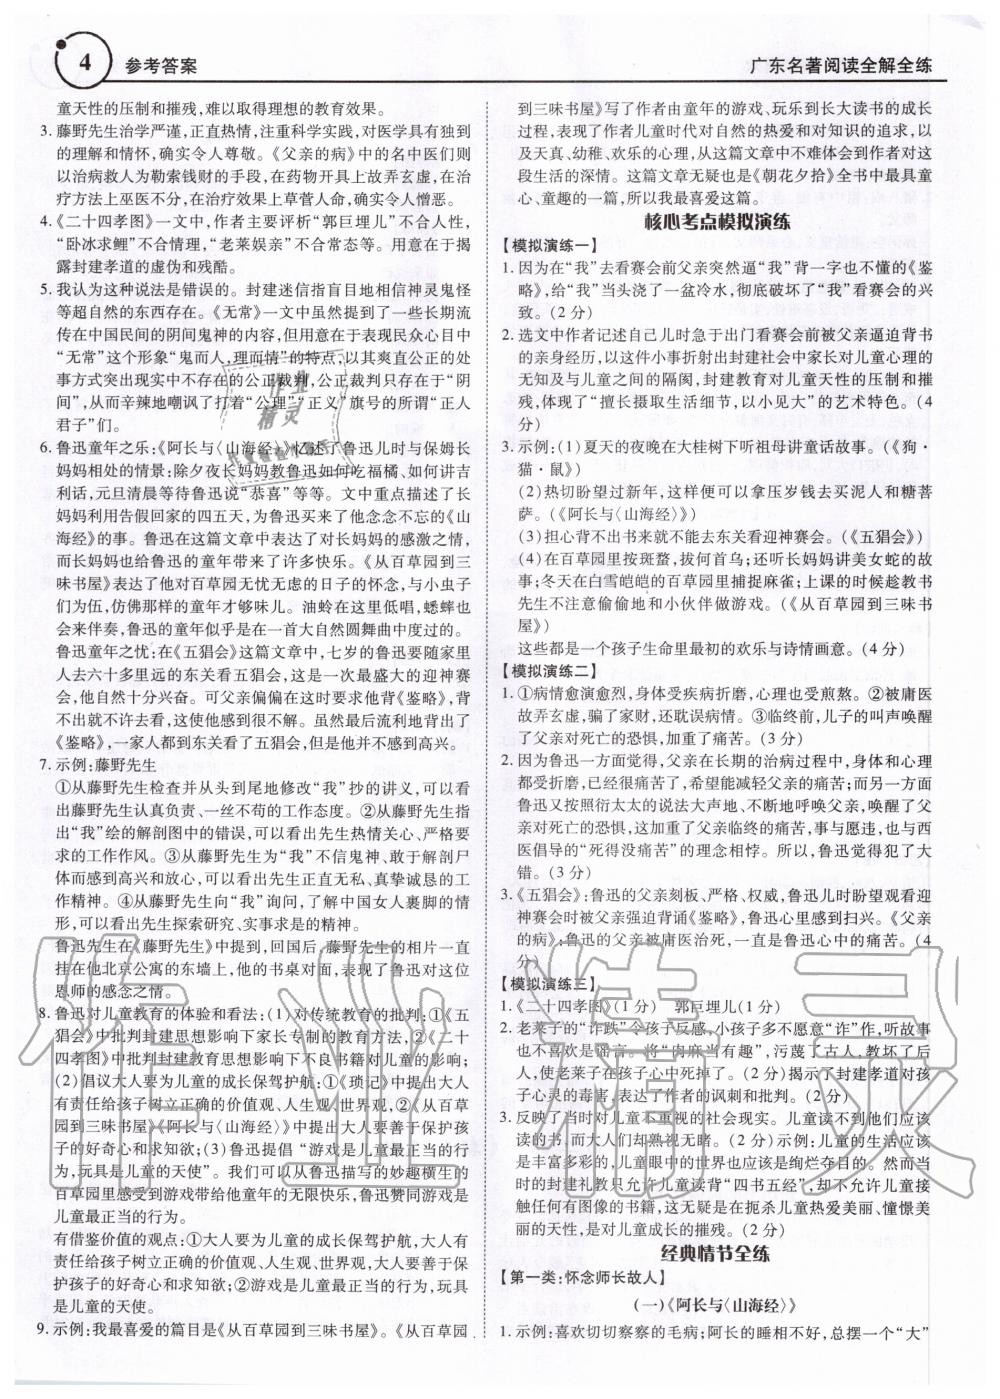 4 参考答案
广东名著阅读全解全练
童天性的压制和摧残,难以取得理想的教育效果。
3. 藤野先生治学严谨,正直热情,注重科学实践,对医学具有独到
的理解和情怀,确实令人尊敬。《父亲的病》中的名中医们则
以治病救人为勒索钱财的手段,在药物开具上故弄玄虚,在治
疗方法上巫医不分,在治疗效果上草菅人命,确实令人憎恶。
4.《二十四孝图》一文中,作者主要评析“郭巨埋儿”不合人性,
“卧冰求鲤”不合情理,“老莱娱亲”不合常态等。用意在于揭
露封建孝道的虚伪和残酷。
5. 我认为这种说法是错误的。封建迷信指盲目地相信神灵鬼怪
等超自然的东西存在。《无常》一文中虽然提到了一些长期流
传在中国民间的阴间鬼神的内容,但用意在于表现民众心目中
“无常”这个形象“鬼而人,理而情”的特点,以其爽直公正的处
事方式突出现实中不存在的公正裁判,公正裁判只存在于“阴
间”,从而辛辣地嘲讽了打着“公理”“正义”旗号的所谓“正人
君子”们。
6. 鲁迅童年之乐:《阿长与〈山海经〉》忆述了鲁迅儿时与保姆长
妈妈相处的情景:除夕夜长妈妈教鲁迅如何吃福橘、如何讲吉
利话,元旦清晨等待鲁迅说“恭喜”等等。文中重点描述了长
妈妈利用告假回家的四五天,为鲁迅买来了他念念不忘的《山
海经》的事。鲁迅在这篇文章中表达了对长妈妈的感激之情,
而长妈妈也给鲁迅的童年带来了许多快乐。《从百草园到三
味书屋》表达了他对百草园无忧无虑的日子的怀念,与小虫子
们为伍,仿佛那样的童年才够味儿。油蛉在这里低唱,蟋蟀也
会来伴奏,鲁迅的童年似乎是在一首大自然圆舞曲中度过的。
鲁迅童年之忧:在《五猖会》这篇文章中,七岁的鲁迅要随家
人去六十多里远的东关看五猖会,这是一次最盛大的迎神赛
会,他自然十分兴奋。可父亲偏偏在这时要求他背《鉴略》,背
不出就不许去看,这使他感到很不解。虽然最后流利地背出了
《鉴略》,一家人都到东关看了五猖会,但他却不再感到高兴。
7. 示例:藤野先生
①从藤野先生检查并从头到尾地修改“我”抄的讲义,可以看
出藤野先生认真负责、一丝不苟的工作态度。②从藤野先生指
出“我”绘的解剖图中的错误,可以看出先生热情关心、严格要
求的工作作风。③从藤野先生为“我”不信鬼神、敢于解剖尸
体而感到高兴和放心,可以看出先生正直无私、真挚诚恳的工
作精神。④从藤野先生向“我”询问,了解中国女人裹脚的情
形,可以看出先生探索研究、实事求是的精神。
鲁迅先生在《藤野先生》中提到,回国后,藤野先生的相片一直
挂在他北京公寓的东墙上,他的书桌对面,表现了鲁迅对这位
恩师的感念之情。
8. 鲁迅对儿童教育的体验和看法:(1)对传统教育的批判:①《五
猖会》中批判封建思想影响下家长专制的教育方法,②《二十
四孝图》中批判封建教育思想影响下不良书籍对儿童的影响;
(2)倡议大人要为儿童的成长保驾护航:①《琐记》中提出大人
有责任给孩子树立正确的价值观、人生观、世界观,②《从百草
园到三味书屋》《阿长与〈山海经〉》中提出大人要善于保护孩
子的好奇心和求知欲;(3)鲁迅提倡“游戏是儿童最正当的行
为,玩具是儿童的天使”。我们可以从鲁迅描写的妙趣横生的
百草园里感受到游戏带给他童年的无限快乐,鲁迅赞同游戏是
儿童最正当的行为。
有借鉴价值的观点:①大人要为儿童的成长保驾护航,大人有
责任给孩子树立正确的价值观、人生观、世界观,大人要善于保
护孩子的好奇心和求知欲;②游戏是儿童最正当的行为,玩具
是儿童的天使。
9. 示例:我最喜爱的篇目是《从百草园到三味书屋》。《从百草园
到三味书屋》写了作者由童年的游戏、玩乐到长大读书的成长
过程,表现了作者儿童时代对自然的热爱和对知识的追求,以
及天真、幼稚、欢乐的心理,从这篇文章中不难体会到作者对这
段生活的深情。这篇文章无疑也是《朝花夕拾》全书中最具童
心、童趣的一篇,所以我最喜爱这篇。
核心考点模拟演练
【模拟演练一】
1. 因为在“我”去看赛会前父亲突然逼“我”背一字也不懂的《鉴
略》,给“我”当头浇了一盆冷水,彻底破坏了“我”看赛会的兴
致。(2 分)
2. 选文中作者记述自己儿时急于出门看赛会前被父亲逼迫背书
的亲身经历,以这件小事折射出封建社会中家长对儿童心理的
无知及与儿童之间的隔阂,封建教育对儿童天性的压制和摧
残,体现了“擅长摄取生活细节,以小见大”的艺术特色。(4
分)
3. 示例:(1)夏天的夜晚在大桂树下听祖母讲童话故事。(《狗·
猫·鼠》)
(2)热切盼望过新年,这样便可以拿压岁钱去买泥人和糖菩
萨。(《阿长与〈山海经〉》)
(3)担心背不出书来就不能去东关看迎神赛会。(《五猖会》)
(4)在百草园里按斑蝥,拔何首乌;还听长妈妈讲美女蛇的故
事;冬天在白雪皑皑的百草园里捕捉麻雀;上课的时候趁教书
先生不注意偷偷地和小伙伴做游戏。(《从百草园到三味书
屋》)
这些都是一个孩子生命里最初的欢乐与诗情画意。(4 分)
【模拟演练二】
1. ①病情愈演愈烈,身体受疾病折磨,心理也受煎熬。②被庸医
故弄玄虚,骗了家财,还耽误病情。③临终前,儿子的叫声唤醒
了父亲对死亡的恐惧,加重了痛苦。(3 分)
2. 因为鲁迅一方面觉得,父亲在长期的治病过程中,身体和心理
都受折磨,已经很痛苦了,希望能减轻父亲的痛苦;而另一方面
鲁迅又按照衍太太的说法大声地、不断地呼唤父亲,唤醒了父
亲对死亡的恐惧,这加重了父亲临终的痛苦,事与愿违,也与
西医倡导的“死得没痛苦”的理念相悖。所以,鲁迅觉得犯了大
错。(3 分)
3.《五猖会》:鲁迅的父亲刻板、严格、权威,鲁迅儿时盼望观看迎
神赛会时被父亲强迫背诵《鉴略》,鲁迅心里感到扫兴。《父亲
的病》:父亲被庸医治死,一直是鲁迅心中的痛苦。(4
分)
【模拟演练三】
1.《二十四孝图》(1 分) 郭巨埋儿(1 分)
2. 老莱子的“诈跌”令孩子反感,小孩子多不愿意“诈”作,听故事
也不喜欢是谣言。将“肉麻当有趣”,污蔑了古人,教坏了后
人,使老莱子在孩子心中死掉了。(2 分)表达了对封建孝道对
儿童心灵的毒害,表现了作者的讽刺和批判。(2 分)
3. 反映了当时对儿童不重视的社会现实。儿童读不到他们应该
读的书,而大人们却熟视无睹。(2 分)示例:儿童的生活应该
是丰富多彩的,儿童眼中的世界也应该是绚烂夺目的。然而当
时的封建礼教只允许儿童读背“四书五经”,却不允许儿童接
触任何有图像的书,这无疑是在扼杀儿童热爱美丽、憧憬美
丽的天性,是对儿童成长的摧残。(2 分)
经典情节全练
【第一类:怀念师长故人】
(一)《阿长与〈山海经〉》
1. 示例:喜欢切切察察的毛病;阿长的睡相不好,总摆一个“大”
作业精灵